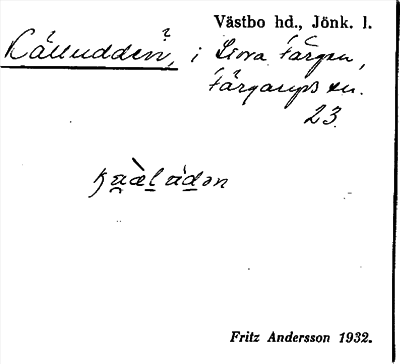 Västbo hd., Jönk. l.
Källudden?, i Stora Färgen,
Färgaryds sn.
23.
Fritz Andersson 1932.